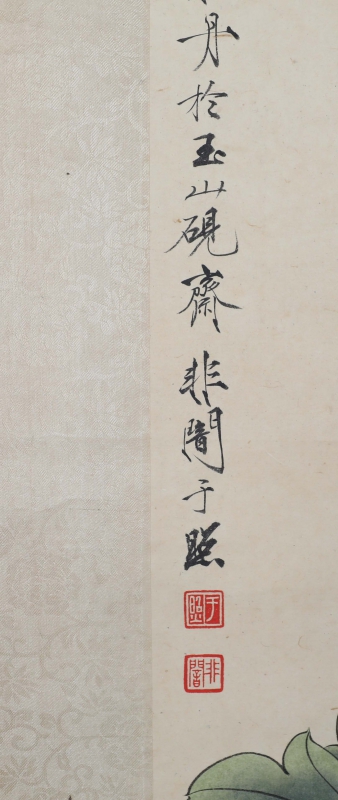 丹於玉山硯齋非闇于照
于照
非闇